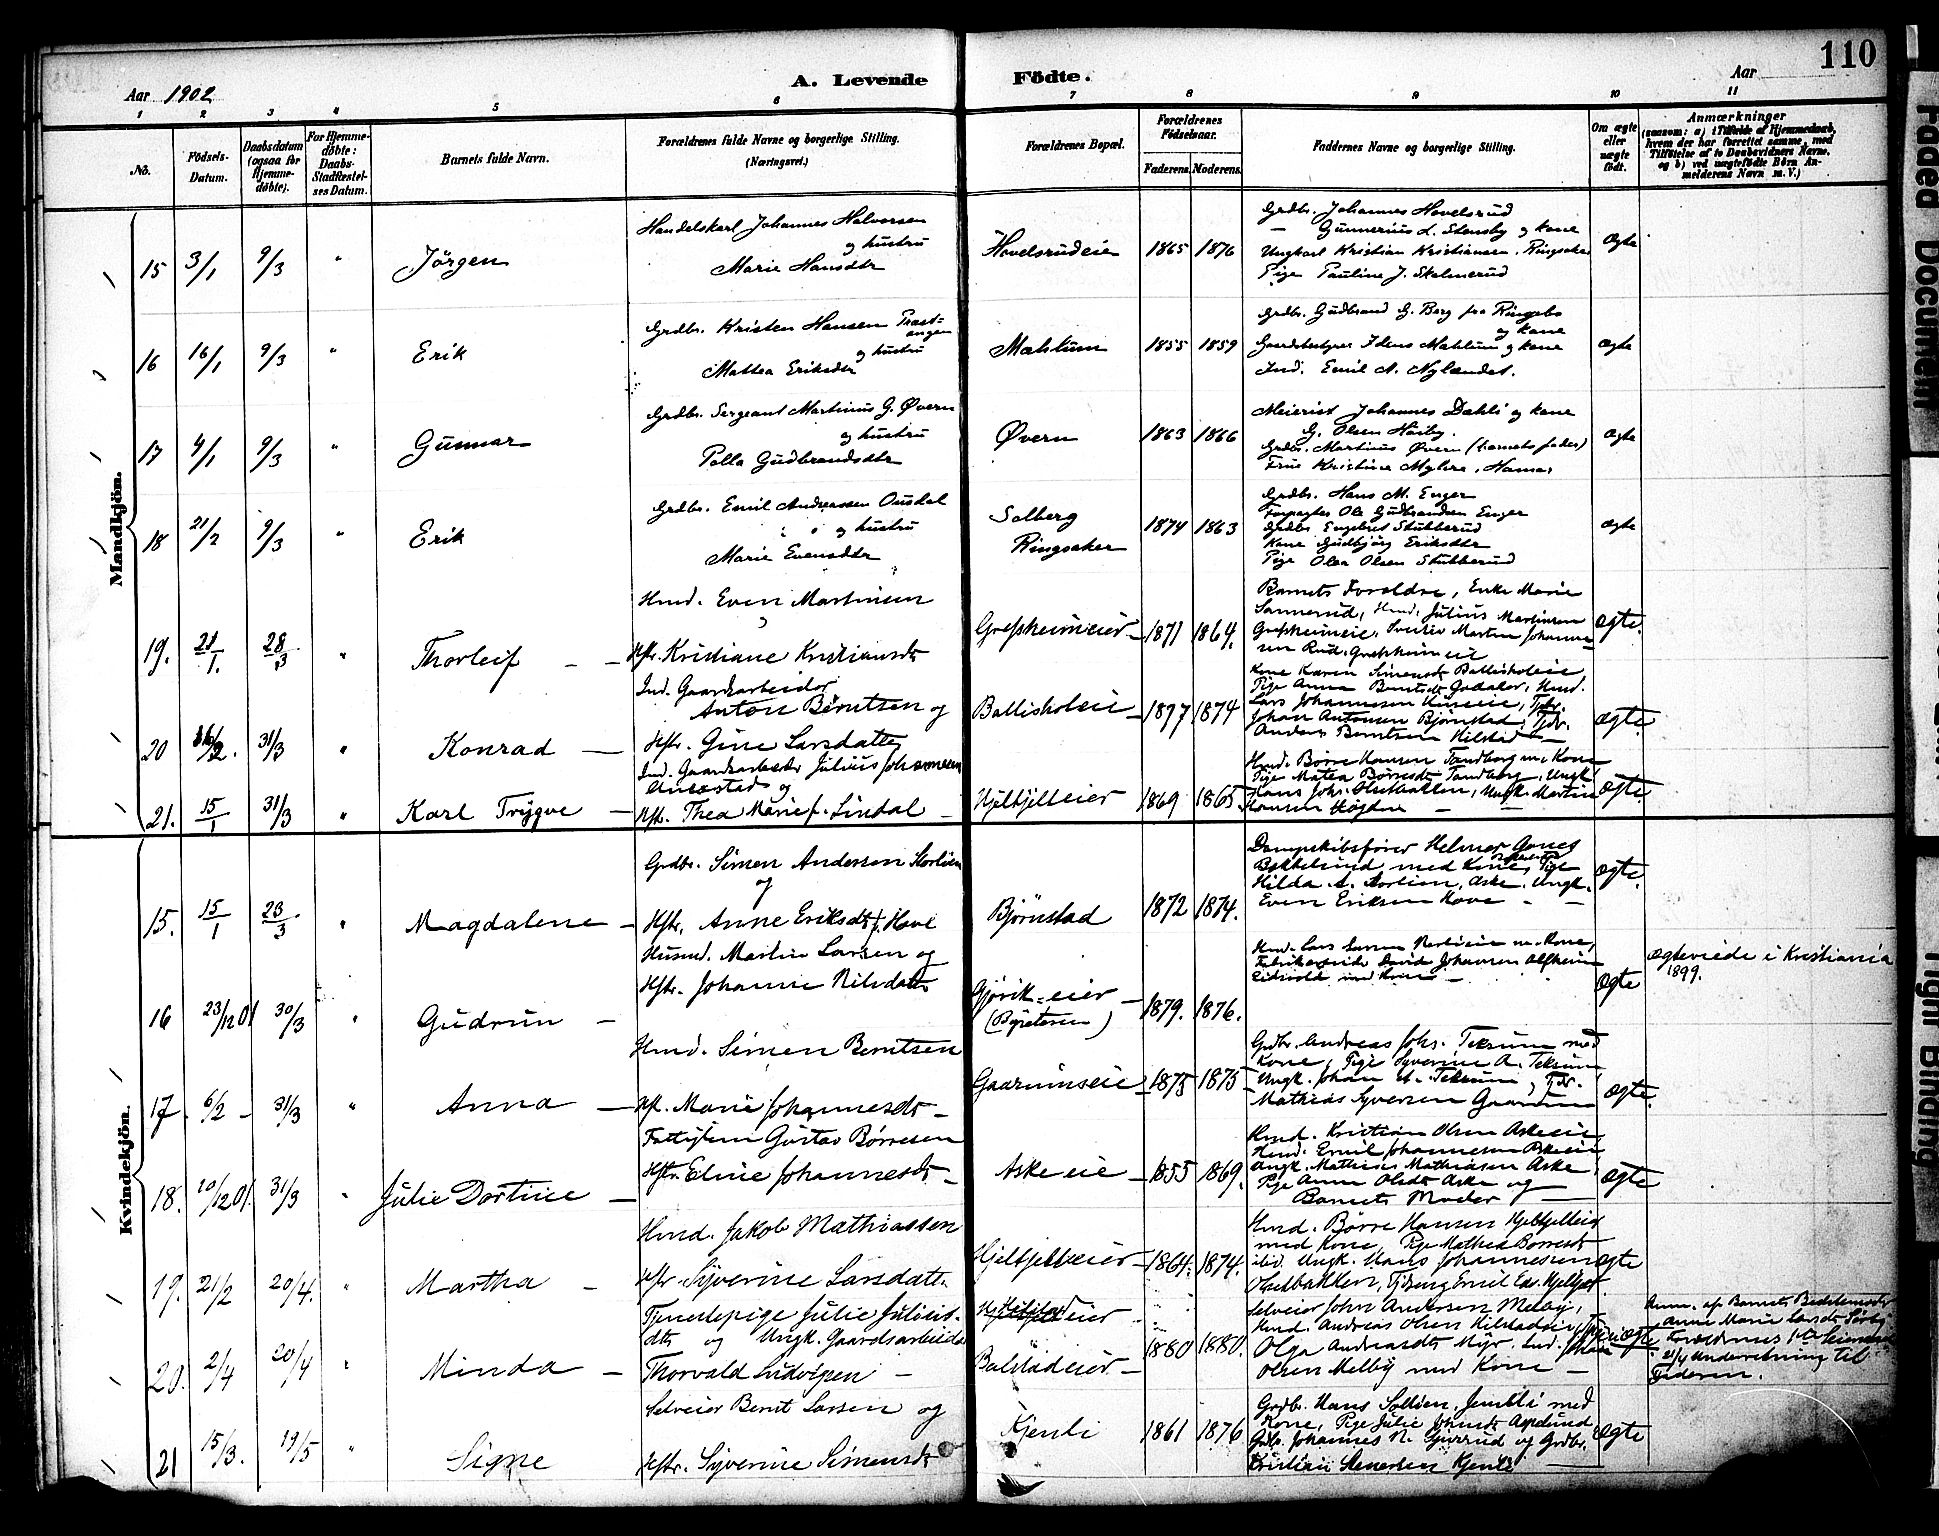 110
A. Levende Födte.
Aar 1902
Aar
1 2 3 4 5 6 7 8 9 10 11
No.
Födsels-Datum.
Daabsdatum (ogsaa for Hjemmedöbte).
For Hjemmedöbte: Daabs-Stadfæstelses Datum.
Barnets fulde Navn.
Forældrenes fulde Navne og borgerlige Stilling. (Næringsvei.)
Forældrenes Bopæl.
Forældrenes Födselsaar.
Faderens. Moderens.
Faddernes Navne og borgerlige Stilling.
Om ægte eller uægte födt.
Anmærkninger
(saasom: a) i Tilfælde af Hjemmedaab, hvem der har forrettet samme, med Tilföielse af to Daabsvidners Navne, og b) ved uægtefödte Börn Anmelderens Navn m. V.)
Mandkjön.
15 3/1 9/3 " Jörgen
Handelskarl Johannes Halvorsen
og hustru
Marie Hansdtr
Hovelsrudeie 1865 1876
Grdbr. Johannes Hovelsrud
— Gunnerius L. Stensby og kone
Ungkarl Kristian Kristiansen, Ringsaker
Pige Pauline J. Skelmerud
Ægte
16 16/1 9/3 " Erik
Grdbr. Kristen Hansen Præst-
angen
og hustru
Mathea Eriksdtr
Mælum 1855 1859
Grdbr. Gudbrand G. Berg fra Ringebo
og kone
Gaardsbestyrer Mæhlum og kone
Ind. Emil N. Nylændet.
Ægte
17 4/1 9/3 " Gunnar
Grdbr. Sergeant Martinus G. Øvern
og hustru
Palla Gudbrandsdtr
Øvern 1863 1866
Meierist Johannes Dæhli og kone
G. Olsen Høiby.
Grdbr. Martinus Øvern (barnets fader)
Frue Kristine Myhre, Hamar
Ægte
18 21/2 9/3 " Erik
Grdbr. Emil Andreassen Ousdal
og hustru
Marie Evensdtr
Solberg
Ringsaker 1874 1863
Grdbr. Hans M. Enger
Forpagter Ole Gudbrandsen Enger
Grdbr Engebret Stubberud
Kone Gudbjørg Eriksdtr
Pige Olea Olsen Stubberud
Ægte
19. 21/1. 28/3 " Thorleif
Hmd. Even Martinsen
Hstr. Kristiane Kristiansdtr
Grefsheimeier 1871 1864.
Barnets Forældre, Enke Marie
Sannerud, Hmd. Julius Martinsen
Grefsheimeie, Martin Johanne-
sen Rud, Grefsheimeie
Ægte.
20 /2. 31/3 " Konrad
Ind. Gaardsarbeider
Anton Berntsen og
Hstr. Gine Larsdatter
Ballisholeie 1877 1874
Kone Karen Simensdt Ballisholeie
Pige Anna Berntsdt Godager, Hmd.
Lars Johannessen Huseie, Tjdr.
Johan Antonsen Bjørnstad, Tjdr.
Anders Berntsen Hilstad
Ægte.
21. 15/1 31/3 " Karl Trygve
Ind. Gaardsarbeider Julius Johannesen
og
Hstr. Thea Marie J. Lindal
Hjelhjelleier 1869 1865.
Hmd. Børre Hansen Tandberg m. Kone
Pige Matea Børresdt Tandberg, Ungk.
Hans Johs. Olsetbakken, Ungk. Martin
Hansen
Ægte.
Kvindekjön.
15. 15/1 23/3 " Magdalene
Grdbr. Simen Andersen Storlien
og
Hstr. Anne Eriksdt f. Hove
Bjørnstad 1872 1874.
Dampskibsfører Helmer Aanes
Bækkelund med Kone, Pige
Hilda A. Stortien, Aske, Ungk.
Even Eriksen Hove
Ægte.
16 23/12 01 30/3 " Gudrun
Husmd. Martin Larsen og
Hstr. Johanne Nilsdatter
Gjøvik-eier
(Bjpeteren) 1879. 1876.
Hmd. Lars Larsen m. Kone,
Fabrikarbeide David Johansen Alfheim
Eidsvold med Kone
Ægte
Ægteviede i Kristiania
1899.
17. 6/2 31/3 " Anna
Hmd. Simen Berntsen
Hst. Marie Johannesdt
Gaarumseie 1875 1875
Grdbr. Andreas Johs. Teksum med
Kone, Pige Syverine A. Teksum
Ungk. Johan A. Teksum, Tjdr.
Mathias Syversen Gaarum
Ægte.
18. 20/12 01. 31/3 " Julie Dortine
Fattiglem Gustav Børresen
Hstr. Eline Johannesdt
Aske eie 1855 1869.
Hmd. Kristian Olsen Askeeie,
Hmd. Emil Johannesen Askeeie
Ungk. Mathias Mathiasen Aske
Pige Anna Olsdt Aske og
Barnets Moder
Ægte
19. 21/2 20/4. " Martha
Hmd. Jakob Mathiassen
Hstr. Syverine Larsdatter
Hjelhjelleier 1864. 1874.
Hmd. Børre Hansen Hjelhjelleier
med Kone, Pige Mathea Børresdt
ibid. Ungk. Hans Johannesen
Olsetbakken, Emil Edv. Hjelhjel.
Ægte
20. 2/4 20/4 " Minda
Tjenestepige Julie Juliusdtr
og Ungk. Gaardsarbeider
Thorvald Ludvigsen
eier
Balstadeier 1880 1880.
Selveier John Andersen Melby,
Hmd. Andreas Olsen Hilstadeie,
Olga Andreasdt Myr, Ind. Johan
Olsen Melby med Kone
uægte
Anm. af Barnets Bedstemoder
Anne Marie Larsdt
Forældrenes
21/4 Underretning til
Faderen.
21 15/3. 19/5 " Signe
Selveier Bernt Larsen og
Hstr. Syverine Simensdt
Kjenli 1861 1876
Grdbr. Hans Sollien, Jemtli med
Kone, Pige Julie Johnsdt Aspelund,
Grdbr. Johannes N. Gjørrud og Grdbr.
Kristian Stenersen Kjenli
Ægte
Faded Document
Tight Binding